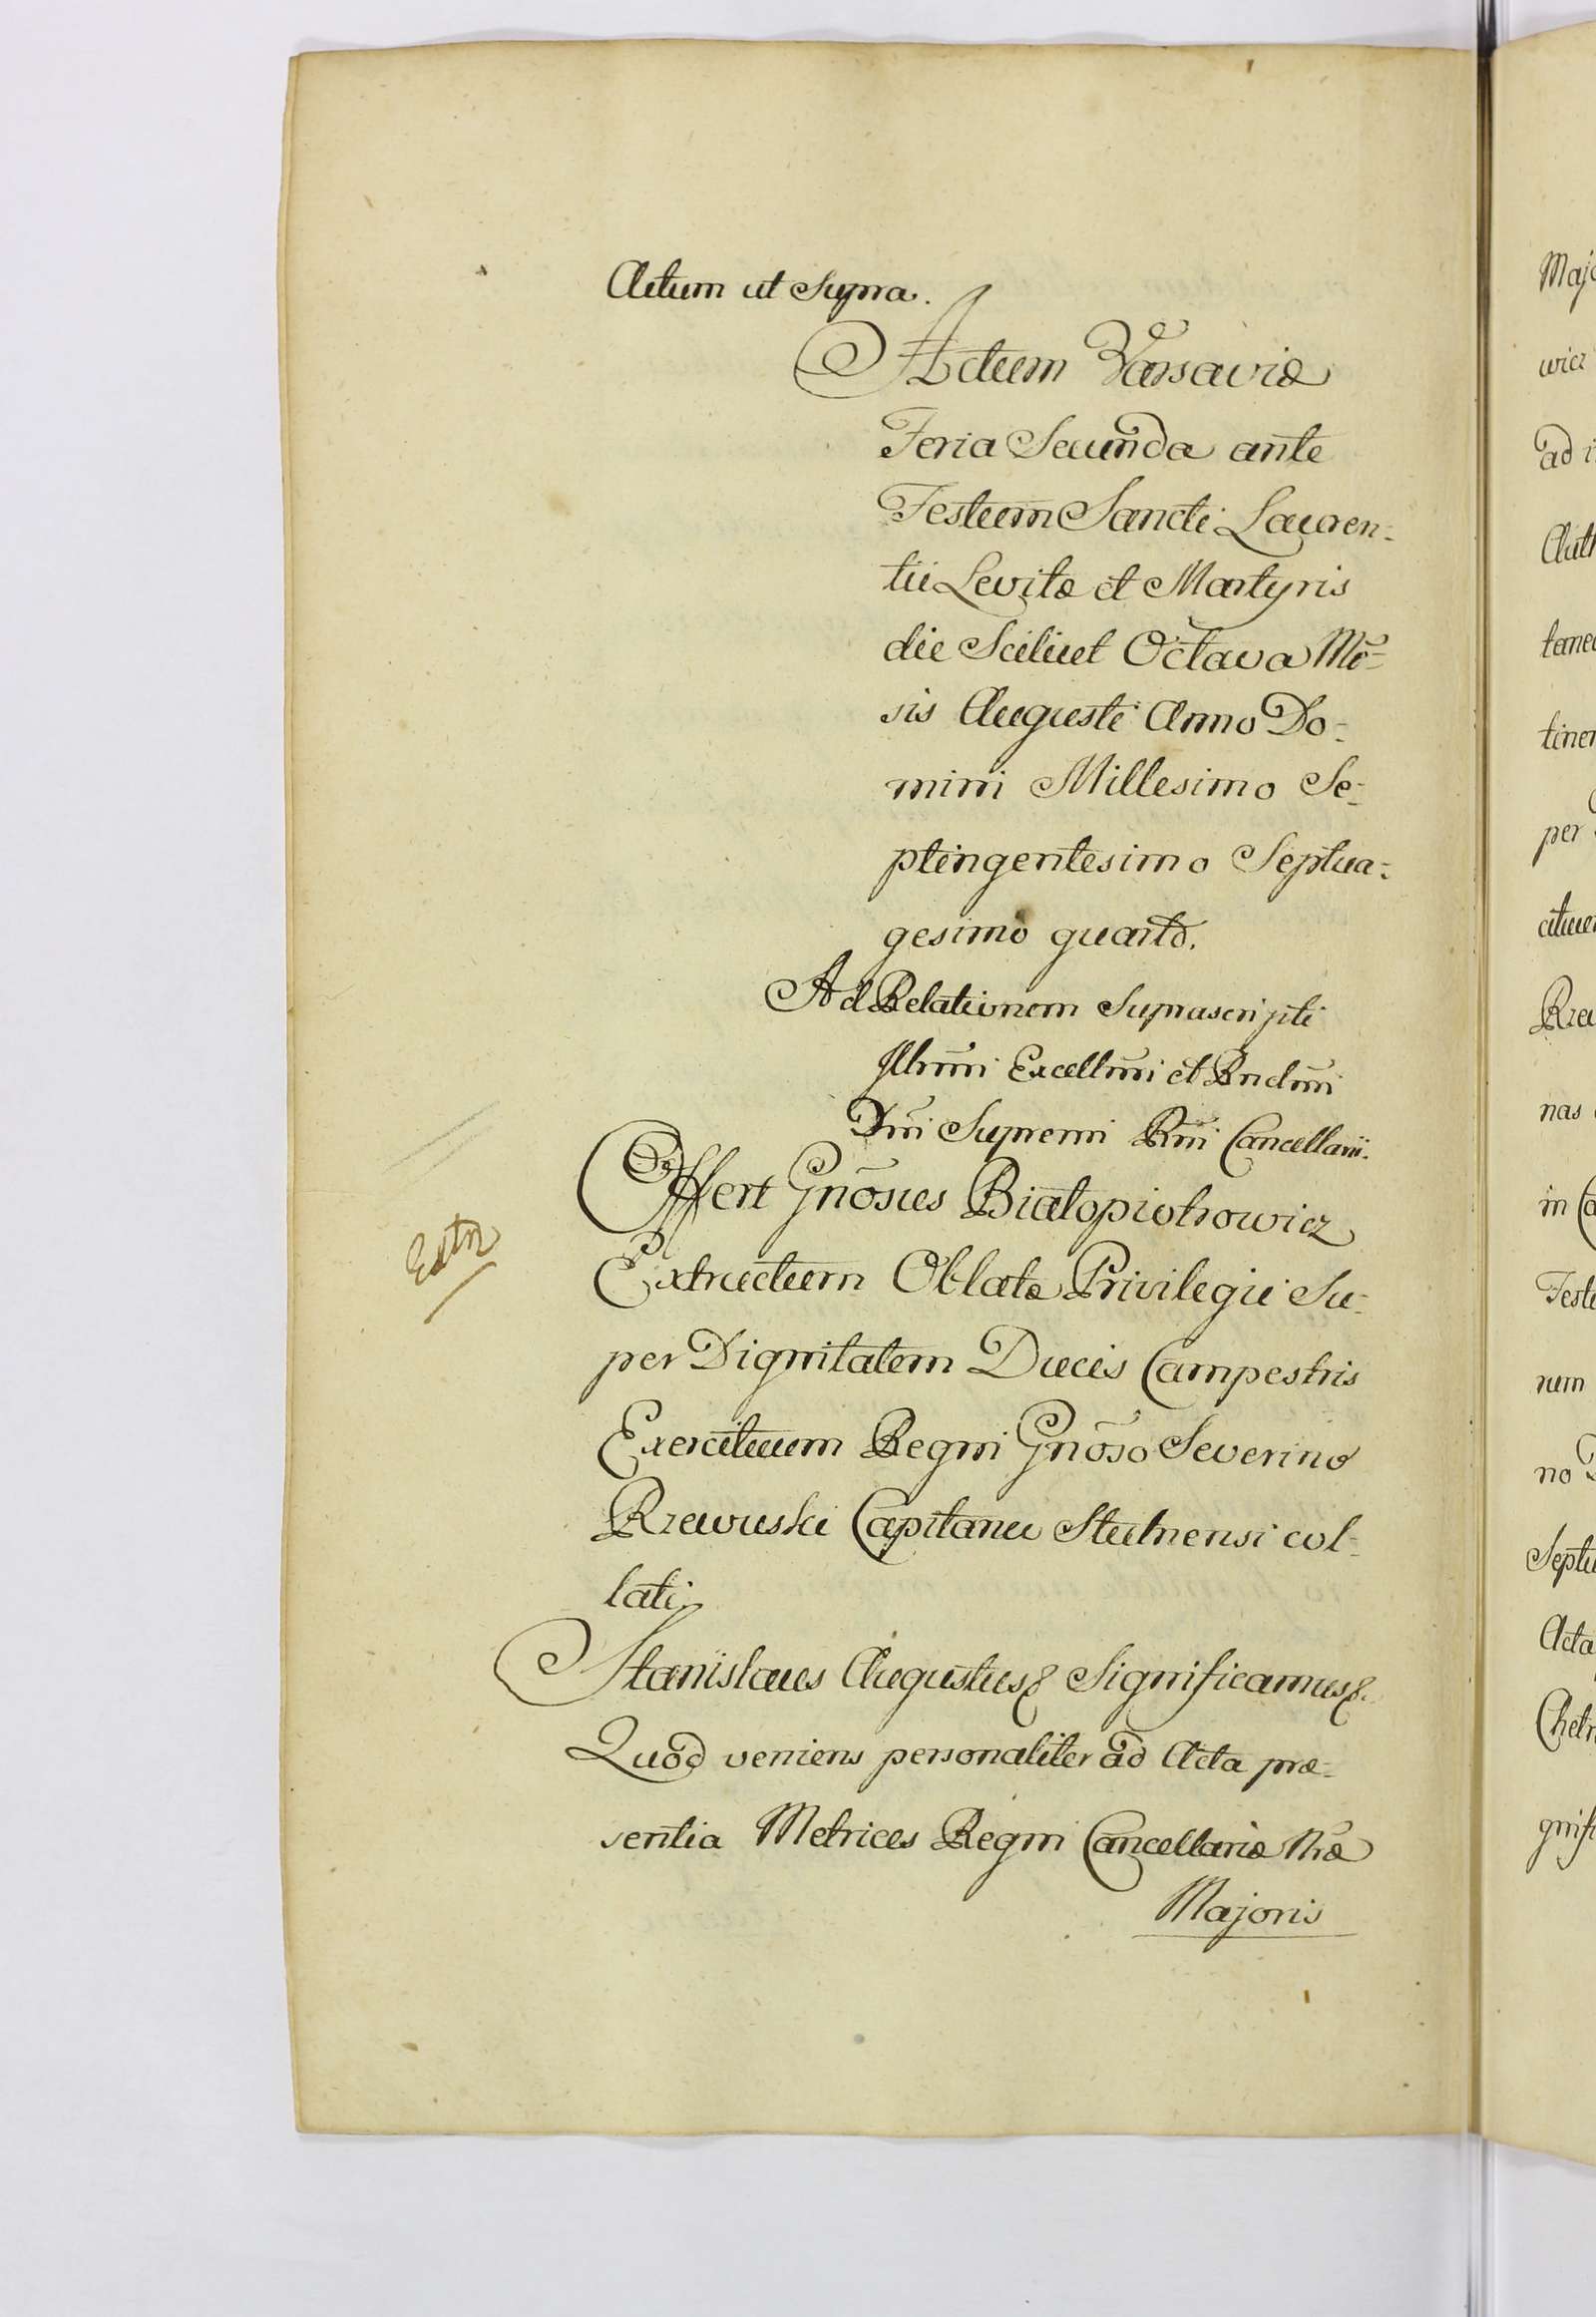 Actum ut Supra.
Actum Varsaviæ
Feria Secunda ante
Festum Sancti Lauren-
tii Levitæ et Martyris
die Scilicet Octava Mē-
sis Augusti Anno Do-
mini Millesimo Se-
ptingentesimo Septua-
gesimo quarto.
Ad Relationem Suprascripti
Illrmi Excellmi et Rndmi
Dni Supremi Rni Cancellarii.
Offert Gnōsus Białopiotrowicz
Extractum Oblatæ Privilegii Su-
per Dignitatem Ducis Campestris
Exercituum Regni Gnōso Severino
Rzewuski Capitaneo Stulnensi col-
lati.
Stanislaus Augustus& Significamus&.
Quod veniens personaliter ad Acta præ-
sentia Metrices Regni Cancellariæ Nræ
Majoris
Extr
Majo
wicz
ad i
Auth
tiner
per
Rzew
nas
in Ca
Feste
rum
no
Septu
Acta
gnifi